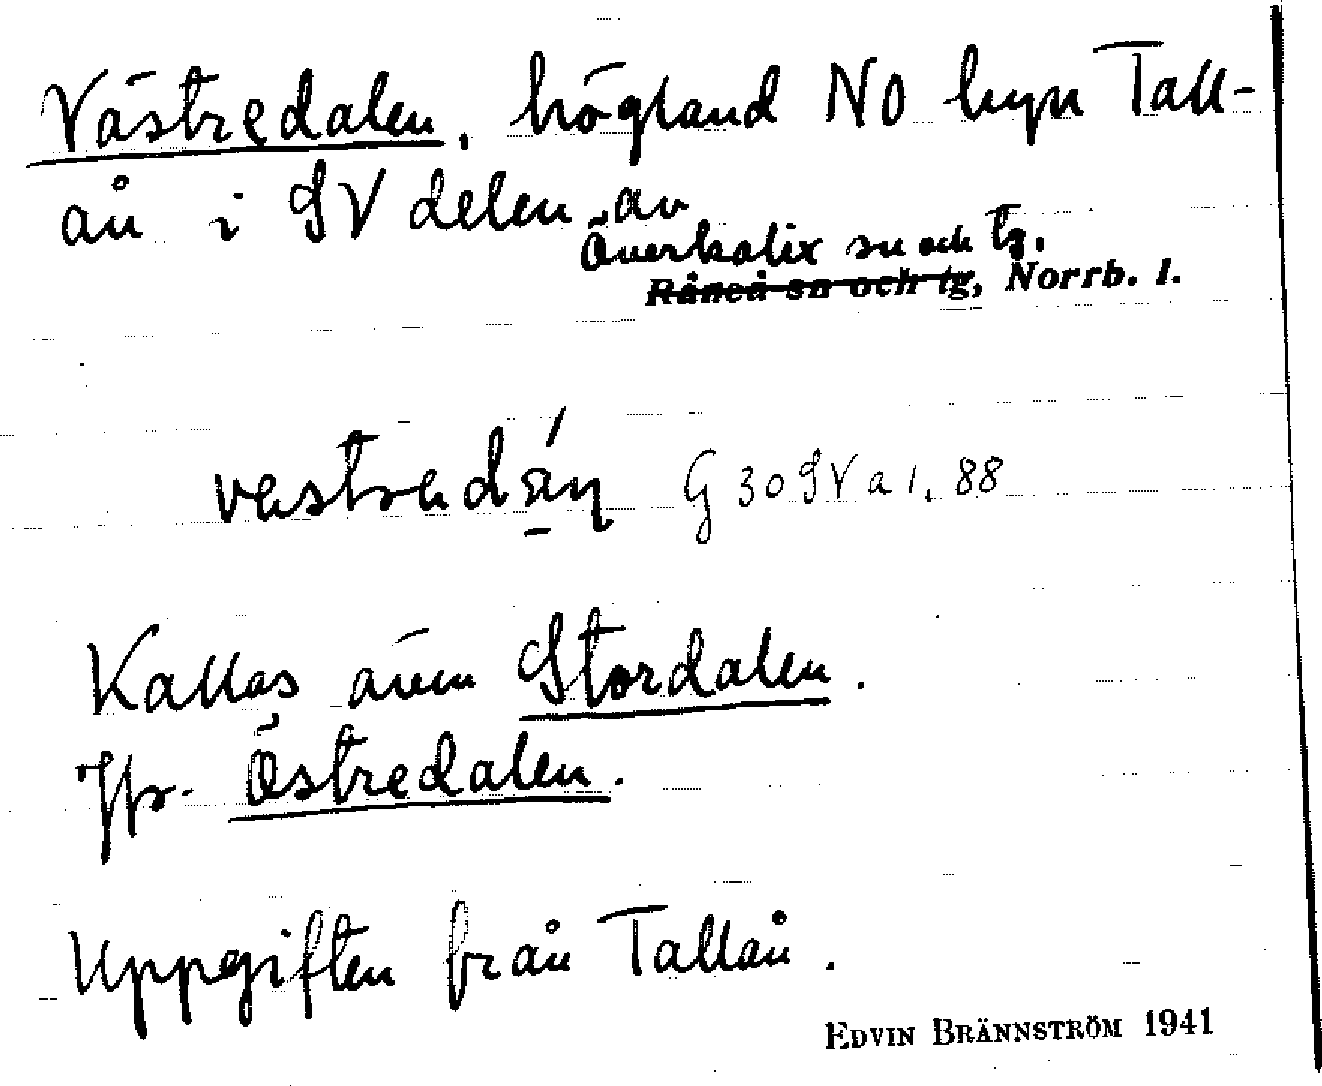 Västredalen, högland NO byn Tall-
ån i SV delen av
Överkalix sn och tg.
Råneå sn och tg, Norrb. l.
G 30 SV a 1, 88
Kallas även Stordalen.
Jfr. Östredalen.
Uppgiften från Tallån.
EDVIN BRÄNNSTRÖM 1941